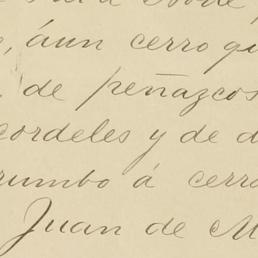 , áun cerro qu
de peñazcos
cordeles y de d
rumbo á cerro
Juan de M